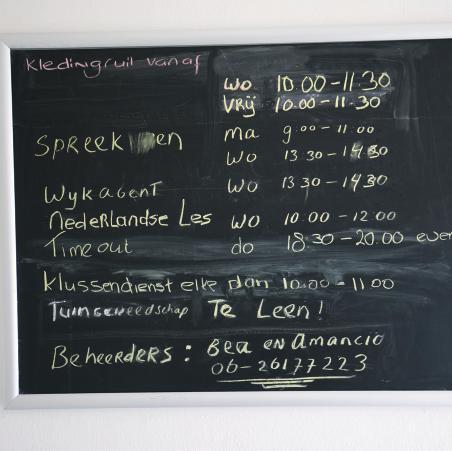 Kledingruil vanaf
wo 10.00-11.30
vrij 10.00-11.30
ma 9.00-11.00
Wo 13.30-14.30
Wykagent Wo 13.30-14.30
Nederlandse Les wo 10.00-12.00
Time out do 18.30-20.00
Klussendienst elke dan 10.00-11.00
Tuingereedschap Te Leen!
Beheerders: Bea en Amancio
06-26177223